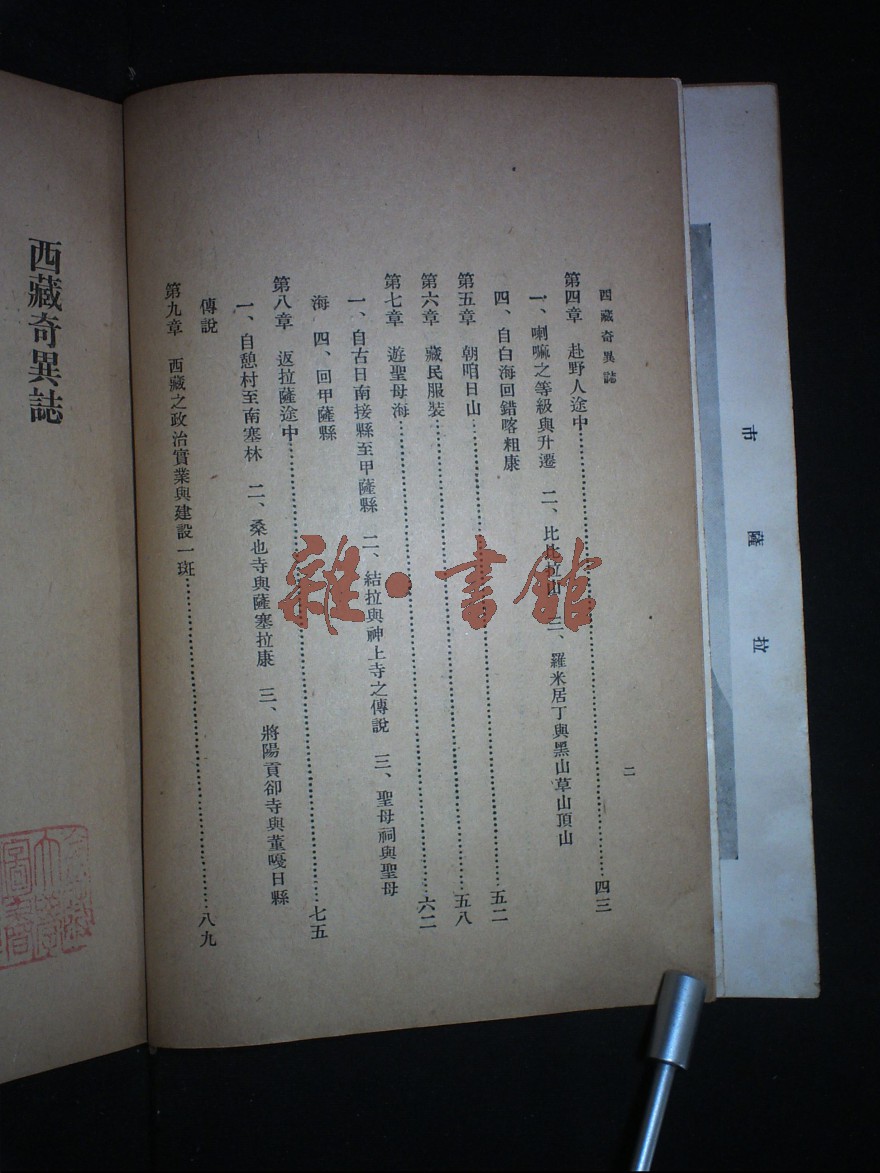 市薩拉
西藏奇異誌
二
第四章 赴野人途中……四三
一、喇嘛之等級與升遷 二、比比拉山 三、羅米居丁與黑山草山頂山
四、自白海回錯喀粗康
第五章 朝咱日山……五二
第六章 藏民服裝……五八
第七章 遊聖母海……六二
一、自古日南接縣至甲薩縣 二、結拉與神上寺之傳說 三、聖母祠與聖母
海 四、回甲薩縣
第八章 返拉薩途中……七五
一、自憩村至南塞林 二、桑也寺與薩塞拉康 三、將陽貢卻寺與董嘎日縣
傳說
第九章 西藏之政治實業與建設一斑……八九
西藏奇異誌
雜·書館